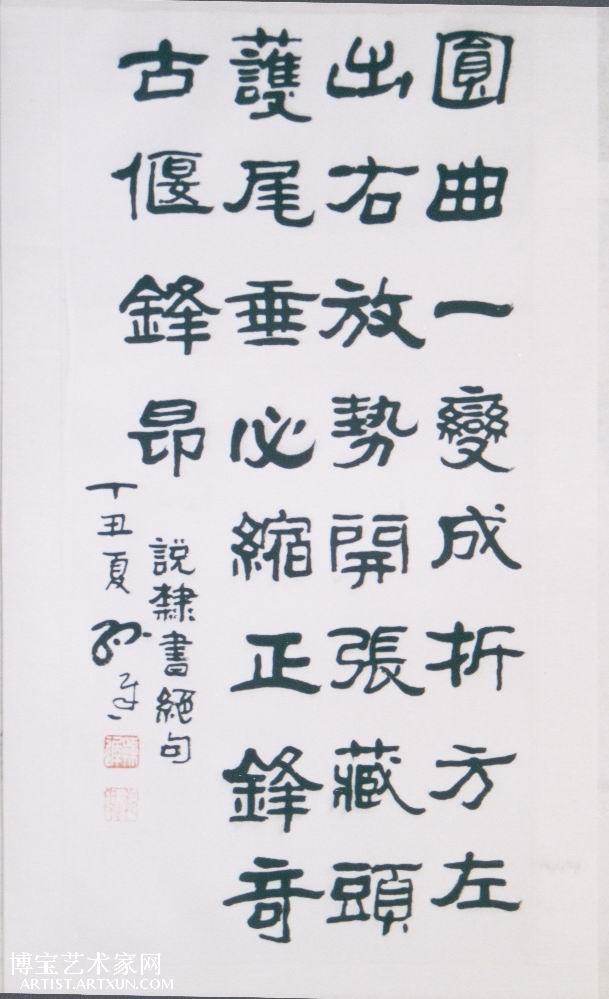 圓曲一變成折方左
出右放勢開張藏頭
護尾垂必縮正鋒奇
古偃鋒昂
說隸書絕句
丁丑夏
博宝艺术家网
ARTIST.ARTXUN.COM